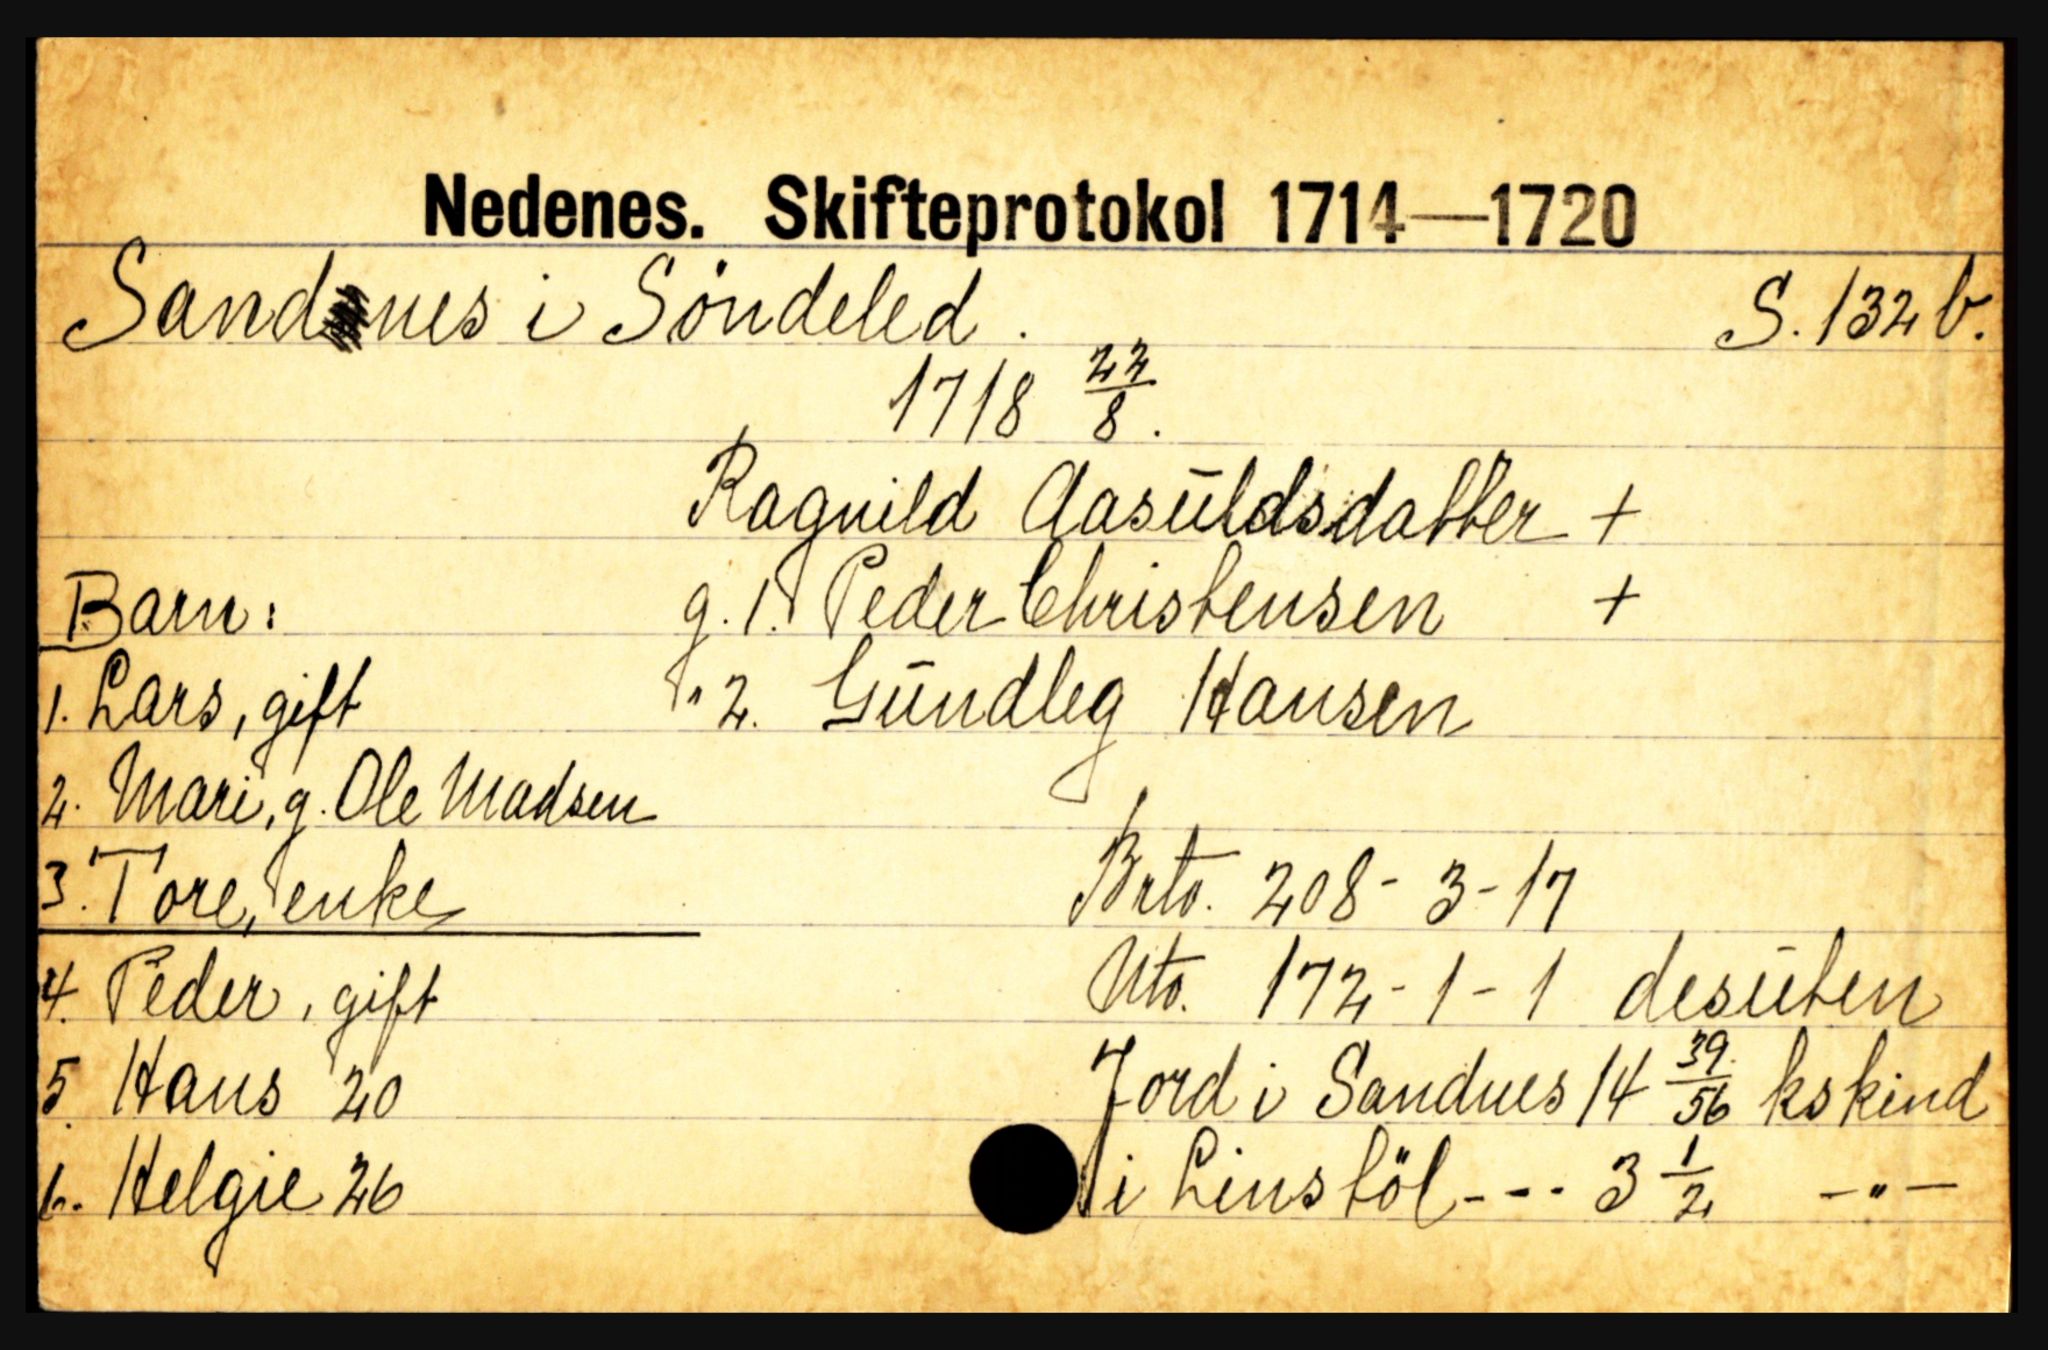 Nedenes. Skifteprotokol 1714—1720
Sandnes i Söndeled. S. 132 b.
1718 22/8.
Ragnild Aasūldsdatter +
Barn: g. 1. Peder Christensen +
1. Lars, gift " 2. Gūndleg Hansen
2. Mari, g. Ole Madsen
3. Tore, enke Brto. 208 - 3 - 17
4. Peder, gift Nto. 172 - 1 - 1 desūten
5. Hans 20 Jord i Sandnes 14 39/56 kskind
6. Helgie 26 i Linstöl - - - 3 1/2 — " —